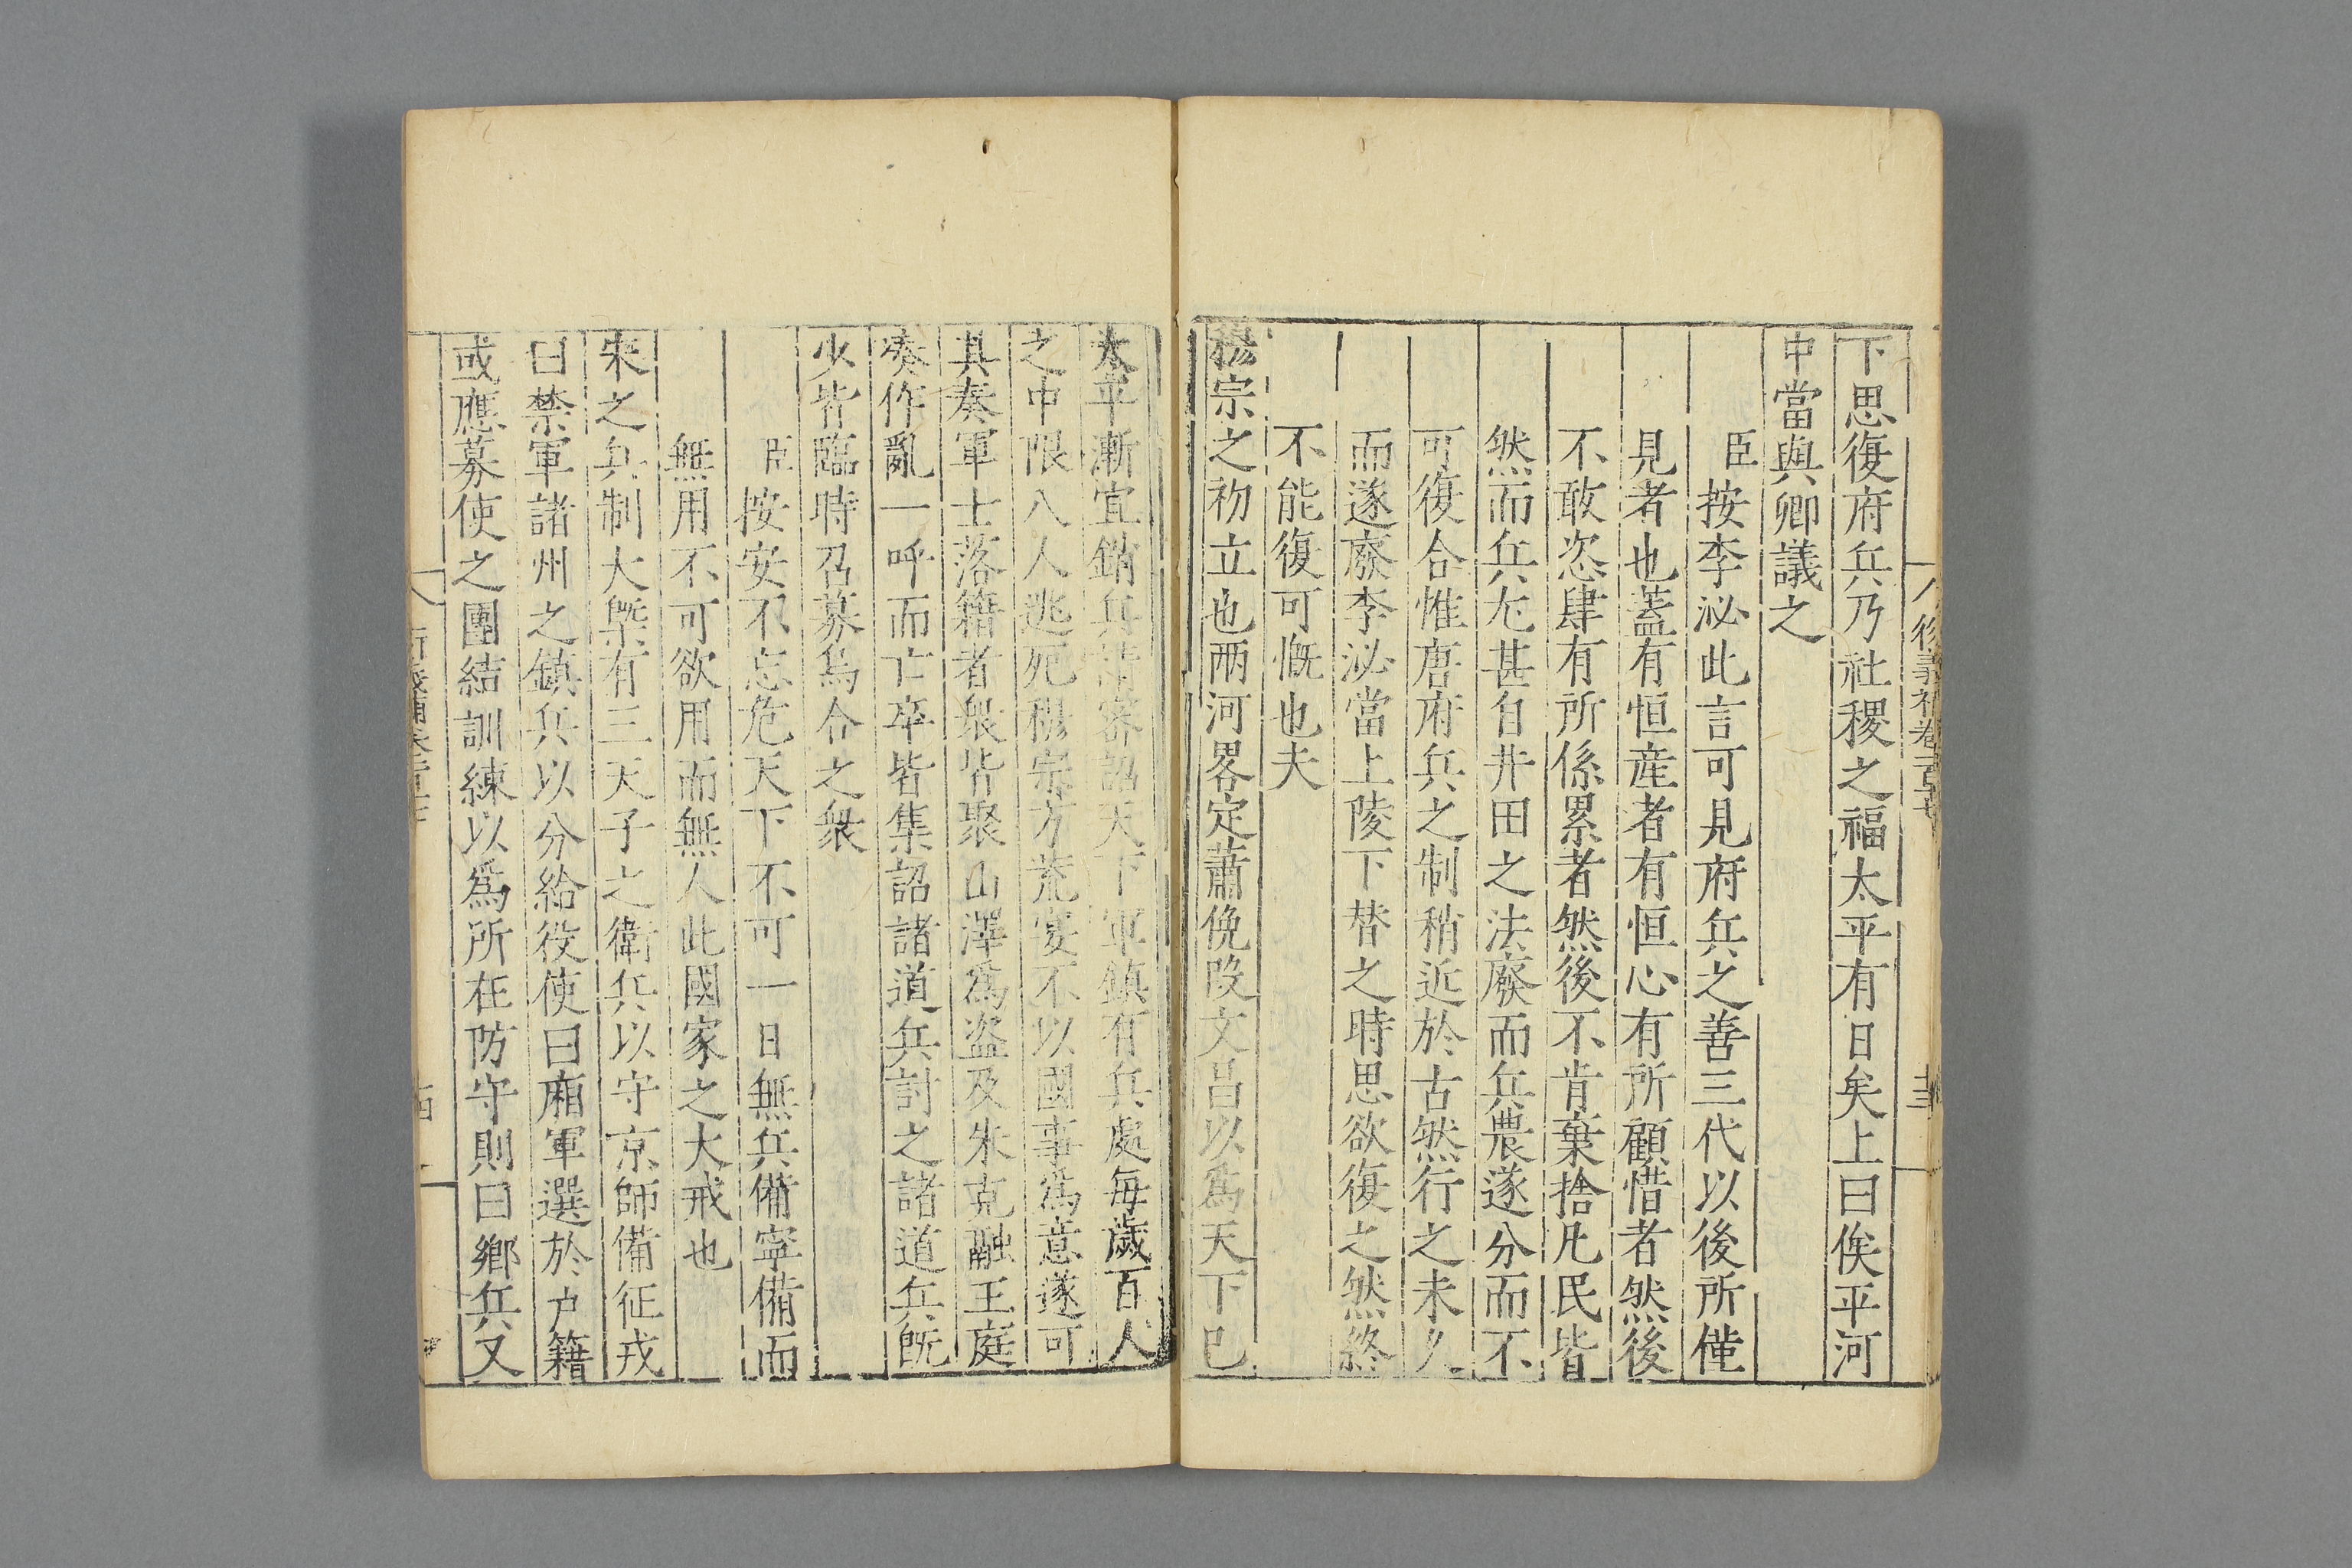 下思復府兵乃社稷之福太平有日矣上曰俟平河
中當與卿議之
臣按李泌此言可見府兵之善三代以後所僅
見者也蓋有恒産者有恒心有所顧惜者然後
不敢恣肆有所係累者然後不肯棄捨凡民皆
然而兵尤甚自井田之法廢而兵農遂分而不
可復合惟唐府兵之制稍近於古然行之未久
而遂廢李泌當上陵下替之時思欲復之然終
不能復可慨也夫
穆宗之初立也兩河畧定蕭俛段文昌以爲天下已
太平漸宜銷兵請密詔天下軍鎮有兵處每歲百人
之中限八人逃死穆宗方荒宴不以國事爲意遂可
其奏軍士落籍者衆皆聚山澤爲盜及朱克融王庭
奏作亂一呼而亡卒皆集詔諸道兵討之諸道兵既
少皆臨時召募烏合之衆
臣按安不忘危天下不可一日無兵備寧備而
無用不可欲用而無人此國家之大戒也
宋之兵制大槩有三天子之衛兵以守京師備征戎
曰禁軍諸州之鎮兵以分給役使曰廂軍選於户籍
或應募使之團結訓練以爲所在防守則曰鄉兵又